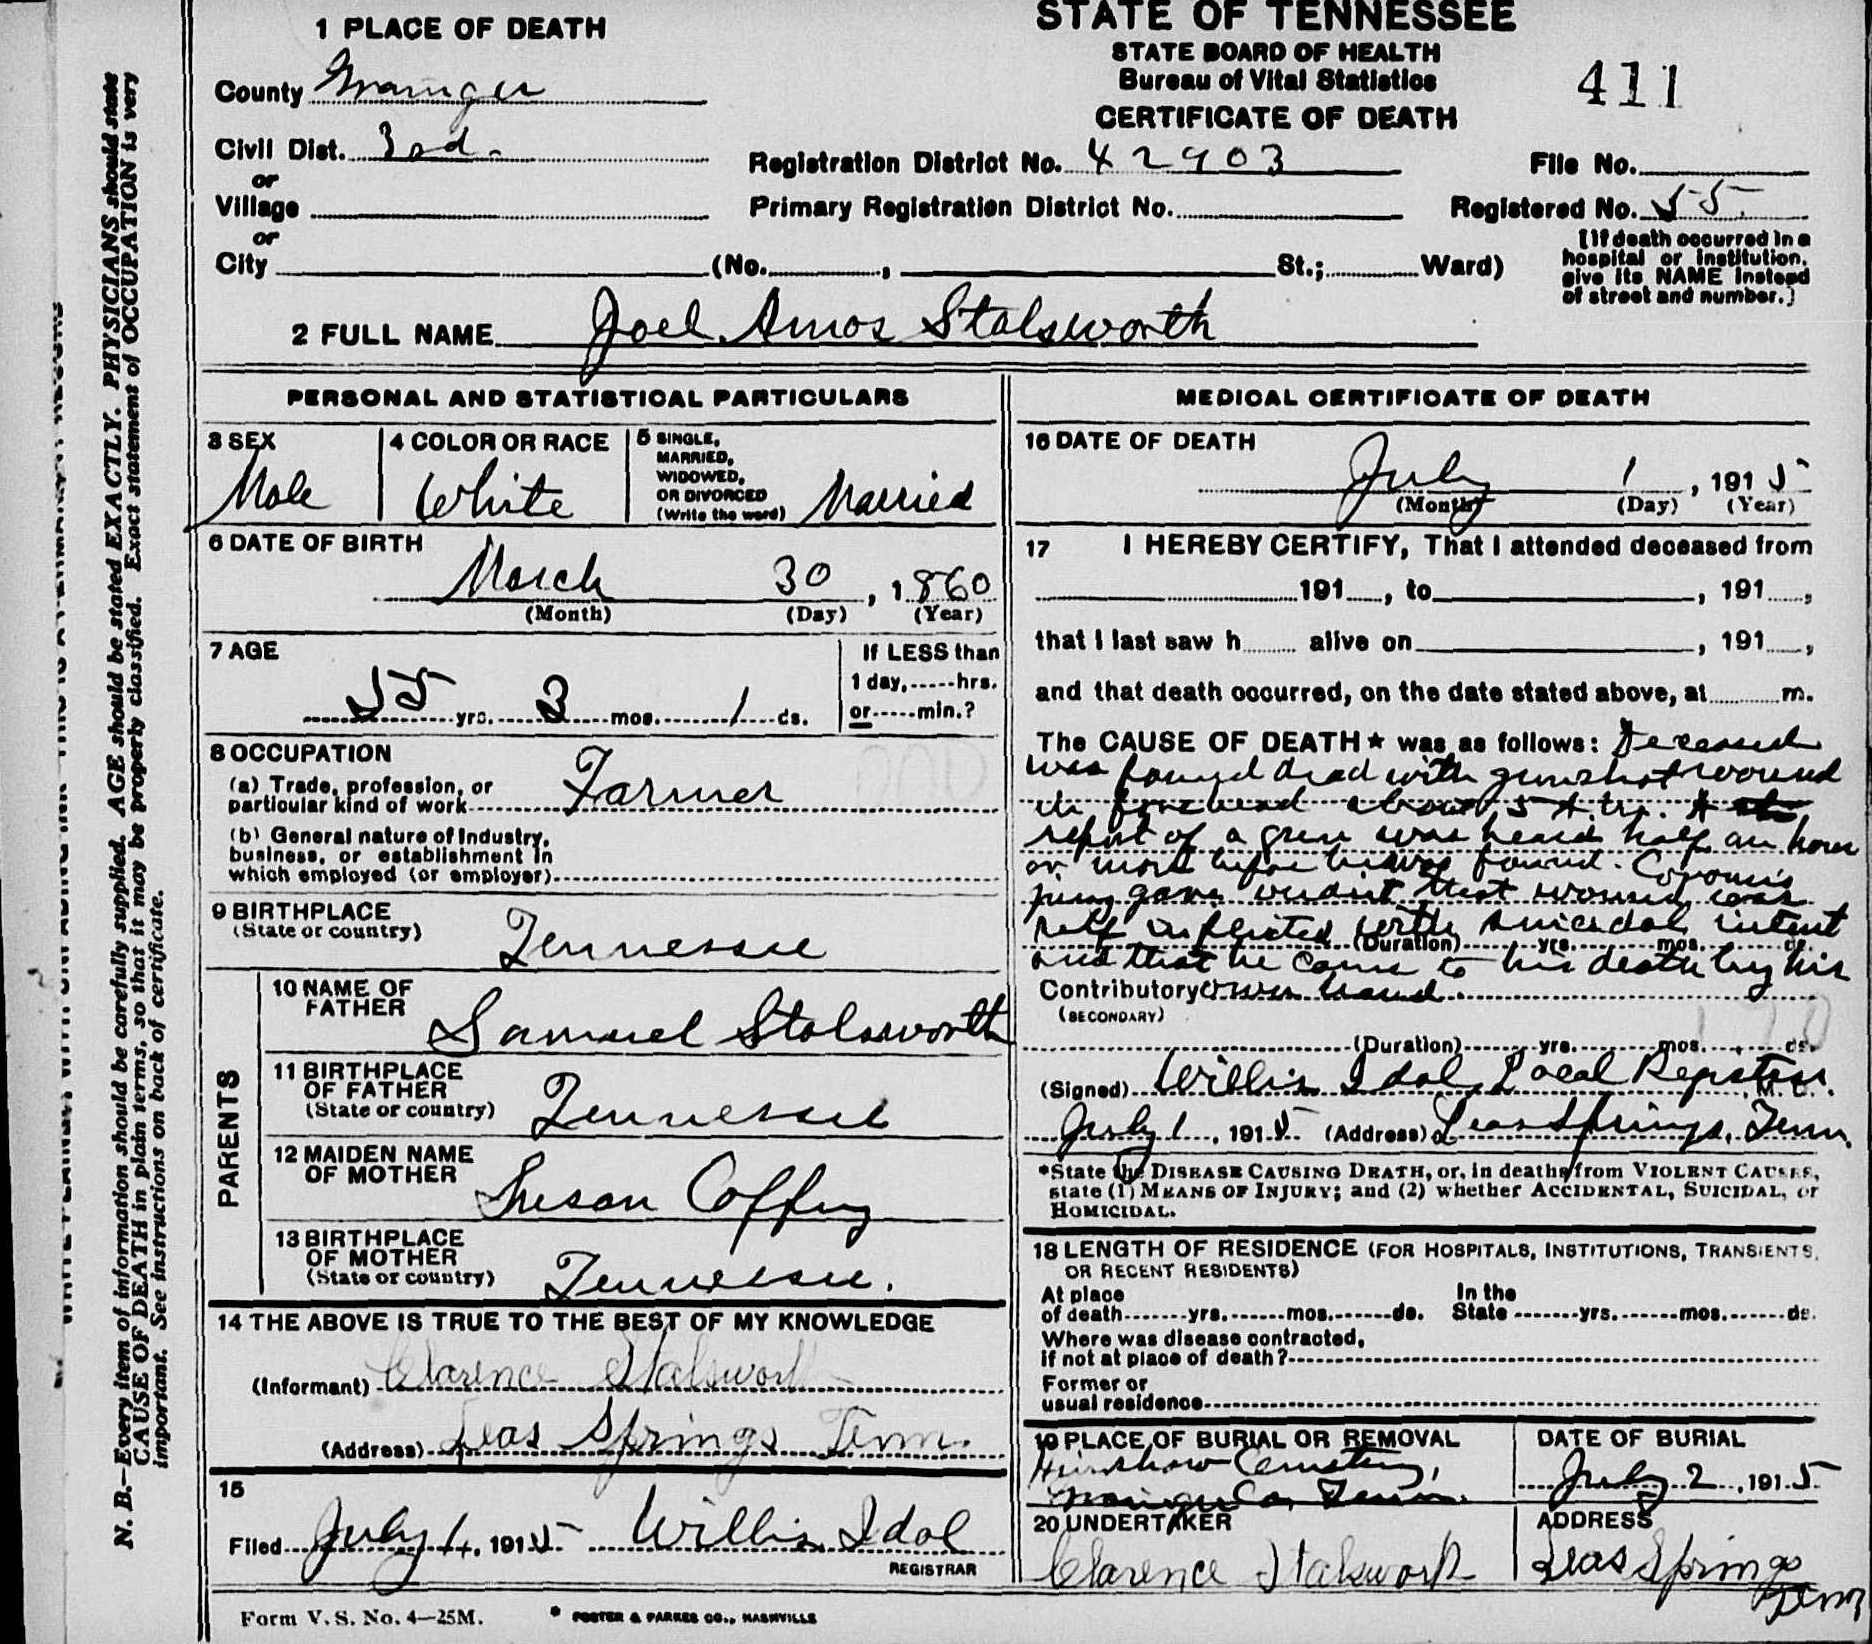 1 PLACE OF DEATH
County Grainger
Civil Dist. 3rd.
or
Village
or
City (No. , St.; Ward)
STATE OF TENNESSEE
STATE BOARD OF HEALTH
Bureau of Vital Statistics
CERTIFICATE OF DEATH
411
Registration District No. 42903
File No.
Primary Registration District No.
Registered No. 55.
[If death occurred in a
hospital or institution,
give its NAME instead
of street and number.]
2 FULL NAME Joel Amos Stalsworth
PERSONAL AND STATISTICAL PARTICULARS
3 SEX
Male
4 COLOR OR RACE
White
5 SINGLE,
MARRIED,
WIDOWED,
OR DIVORCED
(Write the word)
Married
6 DATE OF BIRTH
March 30, 1860
(Month) (Day) (Year)
7 AGE
55 yrs. 3 mos. 1 ds.
If LESS than
1 day, hrs.
or min.?
8 OCCUPATION
(a) Trade, profession, or
particular kind of work Farmer
(b) General nature of industry,
business, or establishment in
which employed (or employer)
9 BIRTHPLACE
(State or country)
Tennessee
PARENTS
10 NAME OF
FATHER
Samuel Stalsworth
11 BIRTHPLACE
OF FATHER
(State or country)
Tennessee
12 MAIDEN NAME
OF MOTHER
Susan Coffey
13 BIRTHPLACE
OF MOTHER
(State or country)
Tennessee.
14 THE ABOVE IS TRUE TO THE BEST OF MY KNOWLEDGE
(Informant) Clarence Stalsworth
(Address) Leas Springs Tenn.
15
Filed July 1, 1915 Willis Idol
REGISTRAR
MEDICAL CERTIFICATE OF DEATH
16 DATE OF DEATH
July 1, 1915
(Month) (Day) (Year)
17 I HEREBY CERTIFY, That I attended deceased from
191 , to , 191 ,
that I last saw h alive on , 191 ,
and that death occurred, on the date stated above, at m.
The CAUSE OF DEATH* was as follows: Deceased
was found dead with gunshot wound
in forehead about 5 A.M. A
report of a gun was heard half an hour
or more before he was found. Coroner's
jury gave verdict that wound was
self inflicted with suicidal intent
(Duration) yrs. mos. ds.
and that he came to his death by his
Contributory own hand.
(SECONDARY)
(Duration) yrs. mos. ds.
(Signed) Willis Idol, Local Register, M. D.
July 1, 1915 (Address) Leas Springs, Tenn.
*State the DISEASE CAUSING DEATH, or, in deaths from VIOLENT CAUSES,
state (1) MEANS OF INJURY; and (2) whether ACCIDENTAL, SUICIDAL, or
HOMICIDAL.
18 LENGTH OF RESIDENCE (FOR HOSPITALS, INSTITUTIONS, TRANSIENTS,
OR RECENT RESIDENTS)
At place In the
of death yrs. mos. ds. State yrs. mos. ds.
Where was disease contracted,
if not at place of death?
Former or
usual residence
19 PLACE OF BURIAL OR REMOVAL
Hinshaw Cemetery,
Grainger Co, Tenn.
DATE OF BURIAL
July 2, 1915
20 UNDERTAKER
Clarence Stalsworth
ADDRESS
Leas Springs
Tenn
Form V. S. No. 4—25M.
* FOSTER & PARKES CO., NASHVILLE
N. B.—Every item of information should be carefully supplied. AGE should be stated EXACTLY. PHYSICIANS should state
CAUSE OF DEATH in plain terms, so that it may be properly classified. Exact statement of OCCUPATION is very
important. See instructions on back of certificate.